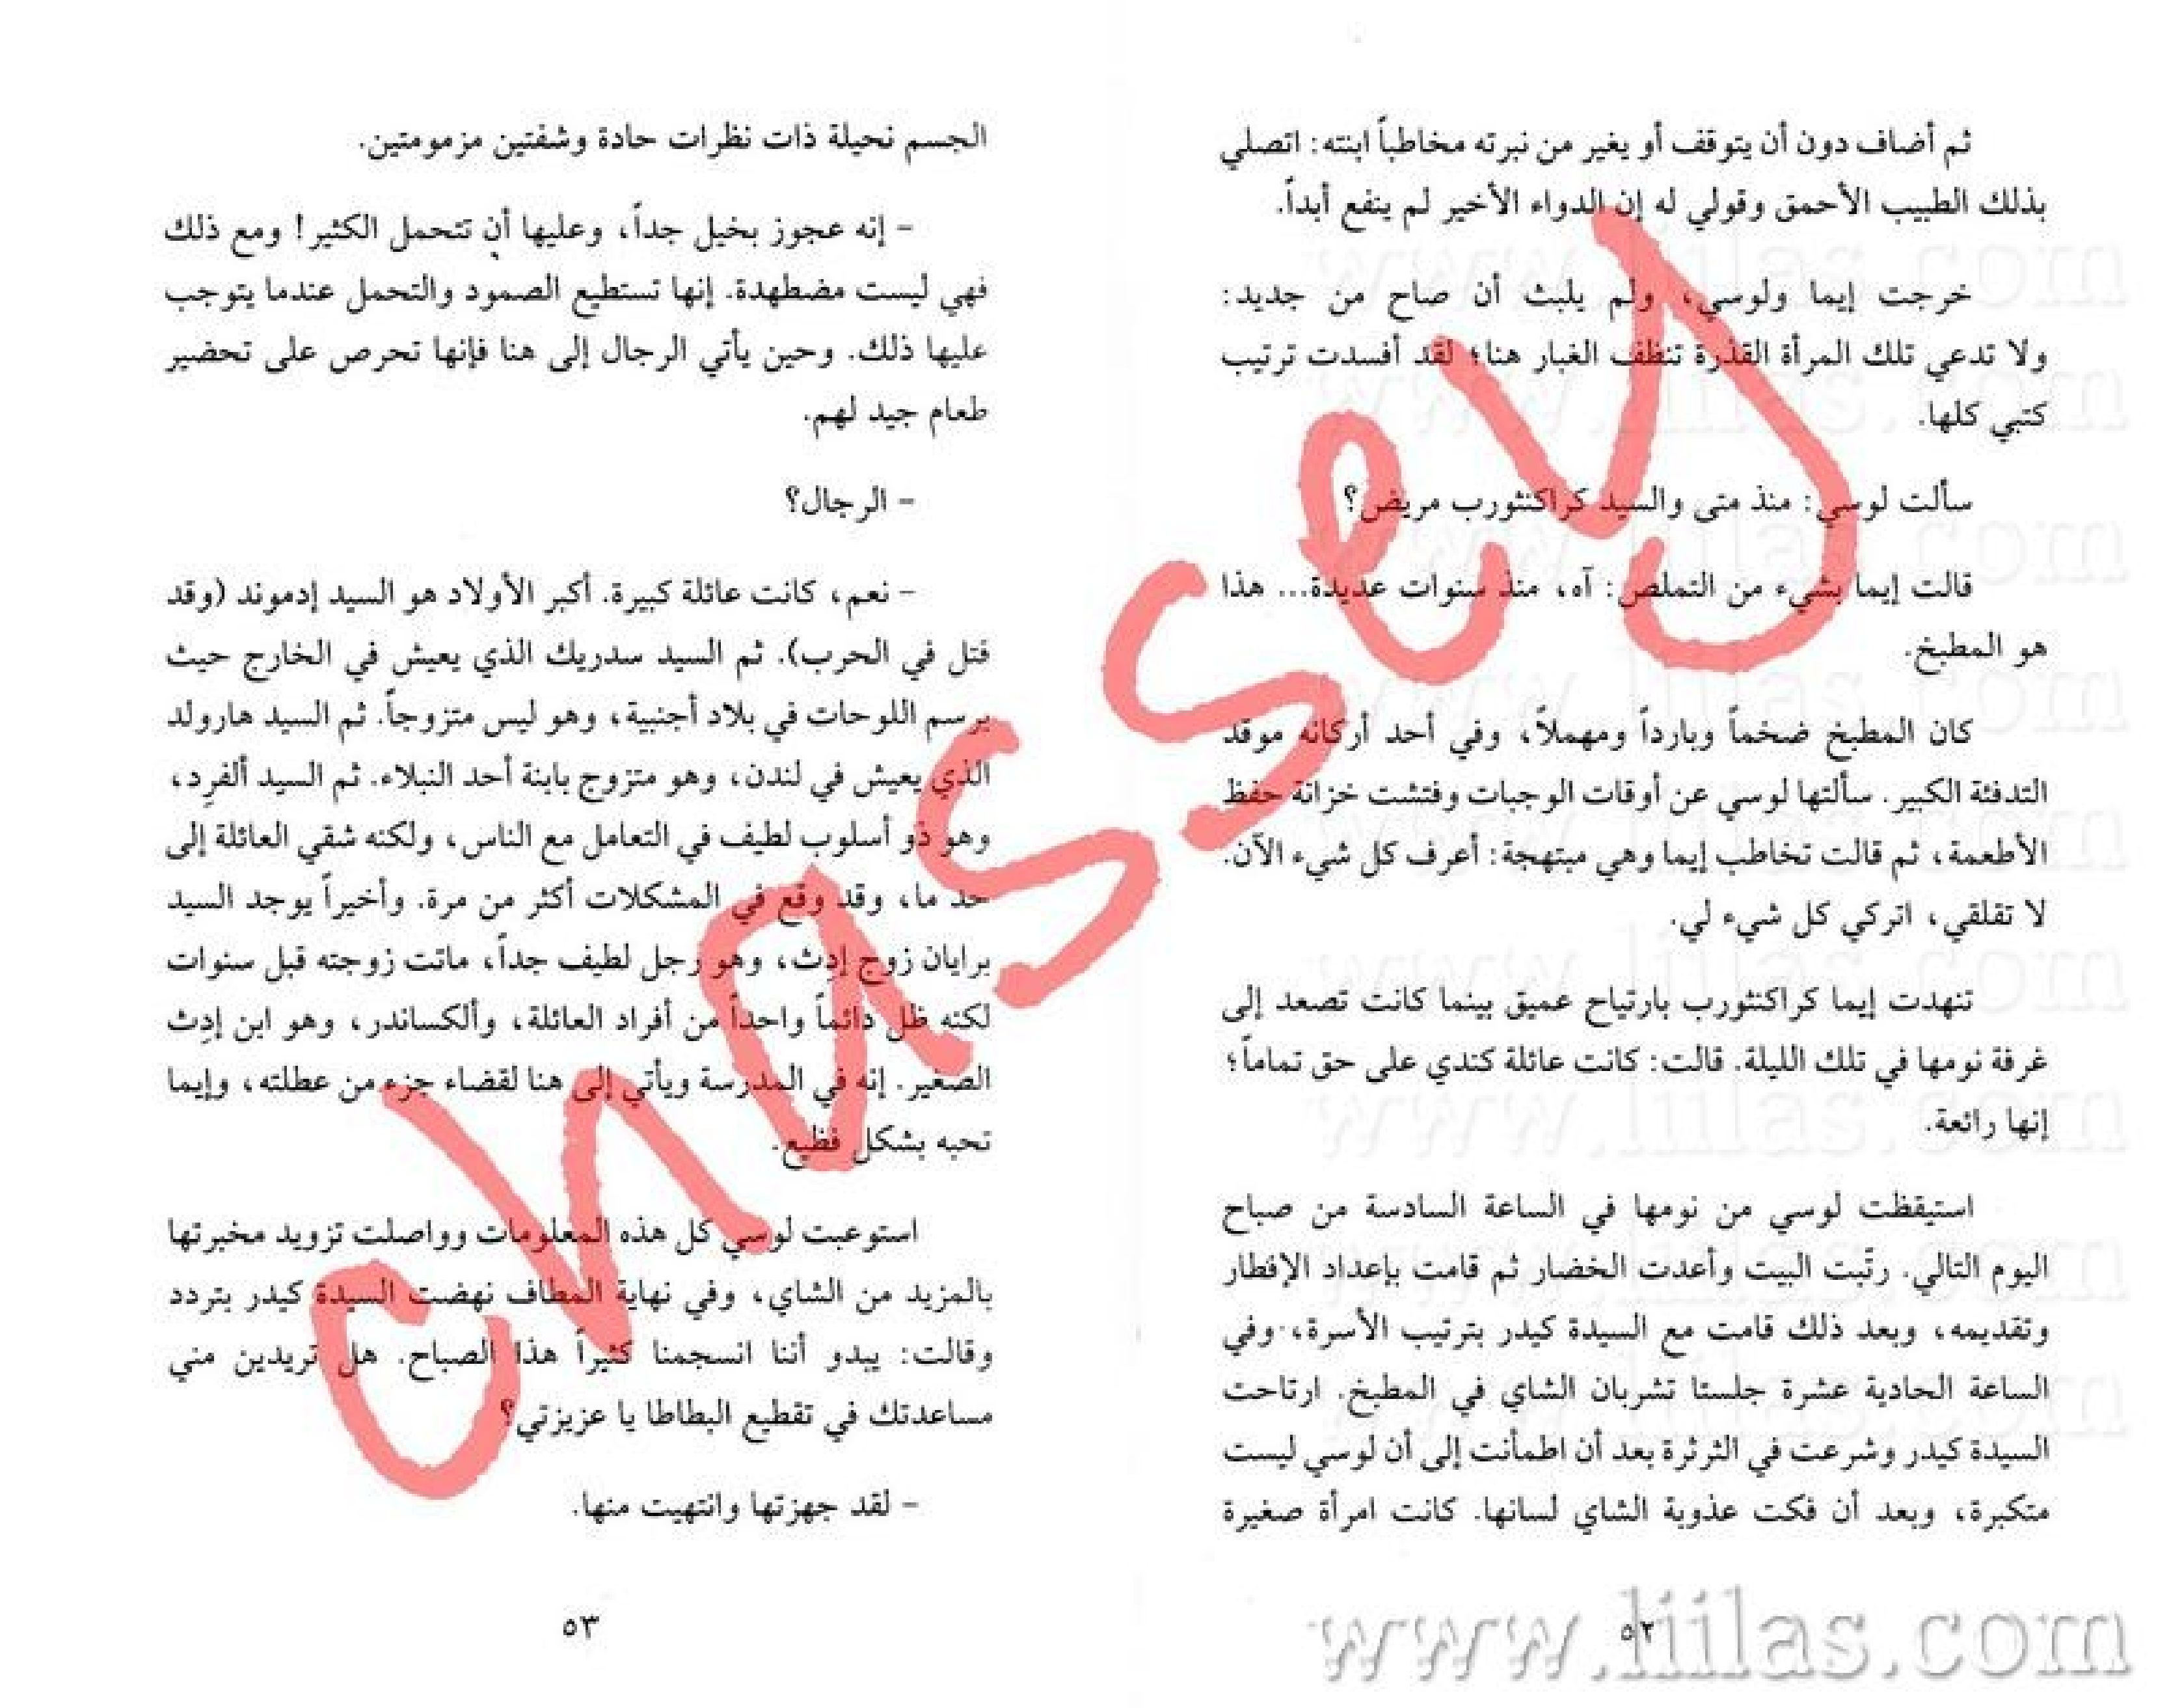 ثم أضاف دون أن يتوقف أو يغير من نبرته مخاطباً ابنته: اتصلي
بذلك الطبيب الأحمق وقولي له إن الدواء الأخير لم ينفع أبداً.
خرجت إيما ولوسي، ولم يلبث أن صاح من جديد:
ولا تدعي تلك المرأة القذرة تنظف الغبار هنا؛ لقد أفسدت ترتيب
كتبي كلها.
سألت لوسي: منذ متى والسيد كراكنثورب مريض؟
قالت إيما بشيء من التملص: آه، منذ سنوات عديدة... هذا
هو المطبخ.
كان المطبخ ضخماً وبارداً ومهملاً، وفي أحد أركانه موقد
التدفئة الكبير. سألتها لوسي عن أوقات الوجبات وفتشت خزانة حفظ
الأطعمة، ثم قالت تخاطب إيما وهي مبتهجة: أعرف كل شيء الآن.
لا تقلقي، اتركي كل شيء لي.
تنهدت إيما كراكنثورب بارتياح عميق بينما كانت تصعد إلى
غرفة نومها في تلك الليلة. قالت: كانت عائلة كندي على حق تماماً؛
إنها رائعة.
استيقظت لوسي من نومها في الساعة السادسة من صباح
اليوم التالي. رتَّبت البيت وأعدت الخضار ثم قامت بإعداد الإفطار
وتقديمه، وبعد ذلك قامت مع السيدة كيدر بترتيب الأسرة، وفي
الساعة الحادية عشرة جلستا تشربان الشاي في المطبخ. ارتاحت
السيدة كيدر وشرعت في الثرثرة بعد أن اطمأنت إلى أن لوسي ليست
متكبرة، وبعد أن فكت عذوبة الشاي لسانها. كانت امرأة صغيرة
٥٢
الجسم نحيلة ذات نظرات حادة وشفتين مزمومتين.
- إنه عجوز بخيل جداً، وعليها أن تتحمل الكثير! ومع ذلك
فهي ليست مضطهدة. إنها تستطيع الصمود والتحمل عندما يتوجب
عليها ذلك. وحين يأتي الرجال إلى هنا فإنها تحرص على تحضير
طعام جيد لهم.
- الرجال؟
- نعم، كانت عائلة كبيرة. أكبر الأولاد هو السيد إدموند (وقد
قتل في الحرب). ثم السيد سدريك الذي يعيش في الخارج حيث
يرسم اللوحات في بلاد أجنبية، وهو ليس متزوجاً. ثم السيد هارولد
الذي يعيش في لندن، وهو متزوج بابنة أحد النبلاء. ثم السيد ألفرِد،
وهو ذو أسلوب لطيف في التعامل مع الناس، ولكنه شقي العائلة إلى
حد ما، وقد وقع في المشكلات أكثر من مرة. وأخيراً يوجد السيد
برايان زوج إدِث، وهو رجل لطيف جداً، ماتت زوجته قبل سنوات
لكنه ظل دائماً واحداً من أفراد العائلة، وألكساندر، وهو ابن إدِث
الصغير. إنه في المدرسة ويأتي إلى هنا لقضاء جزء من عطلته، وإيما
تحبه بشكل فظيع.
استوعبت لوسي كل هذه المعلومات وواصلت تزويد مخبرتها
بالمزيد من الشاي، وفي نهاية المطاف نهضت السيدة كيدر بتردد
وقالت: يبدو أننا انسجمنا كثيراً هذا الصباح. هل تريدين مني
مساعدتك في تقطيع البطاطا يا عزيزتي؟
- لقد جهزتها وانتهيت منها.
٥٣
www.liilas.com